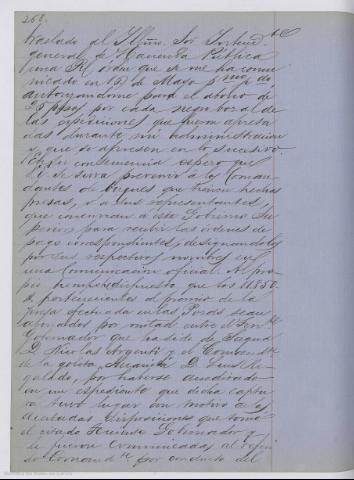 268.
traslado al Illmo. Sor Intend.te
general de Hacienda Pública
una Rl. orden que se me ha comu
nicado en 19 de Mayo
autorizandome para el abono de
25 pesos por cada negro bozal de
las espediciones que fueron apresa
das durante mi administracion
y que se apresen en lo sucesivo.
En su consecuencia espero que
V. se sirva prevenir a los Coman
dantes de buques que tienen hechas
presas, o a sus representantes,
que concurran a este Gobierno Su
perior para recibir las órdenes de
pago correspondientes, designandolos
por sus respectivos nombres en
una Comunicacion oficial. Al pro
pio tiempo dispuesto que los 11850.
$ pertenecientes al premio de la
presa efectuada en las Pozas sean
abonados por mitad entre el Ten.te
Gobernador que ha sido de Sagua
D. Nicolas Argenti y el Comand.te
de la goleta D. Luis Re
galado, por haberse acreditado
en un espediente que dicha captu
ra tuvo lugar con motivo de las
acertadas disposiciones que tomó
el citado Teniente Gobernador y
le fueron comunicadas al referi
do Comand.te por conducto del